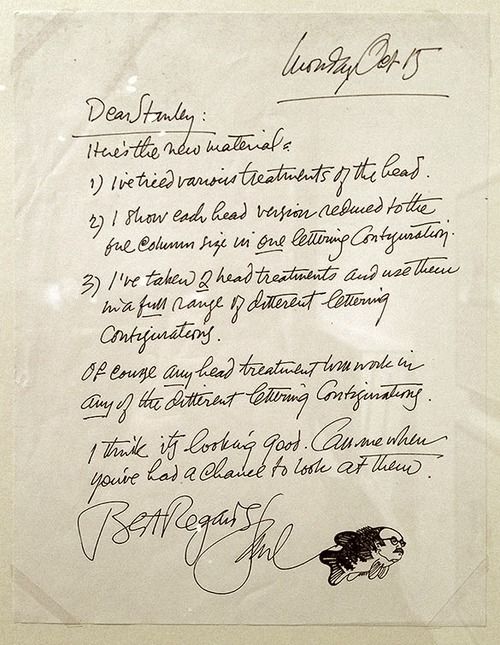 Monday Oct 15
Dear Stanley:
Here's the new material:
1) I've tried various treatments of the head.
2) I show each head version reduced to the
one column size in one lettering configuration.
3) I've taken 2 head treatments and use them
in a full range of different lettering
configurations.
Of course any head treatment will work in
any of the different lettering configurations.
I think it's looking good. Call me when
you've had a chance to look at them.
Best Regards
Saul